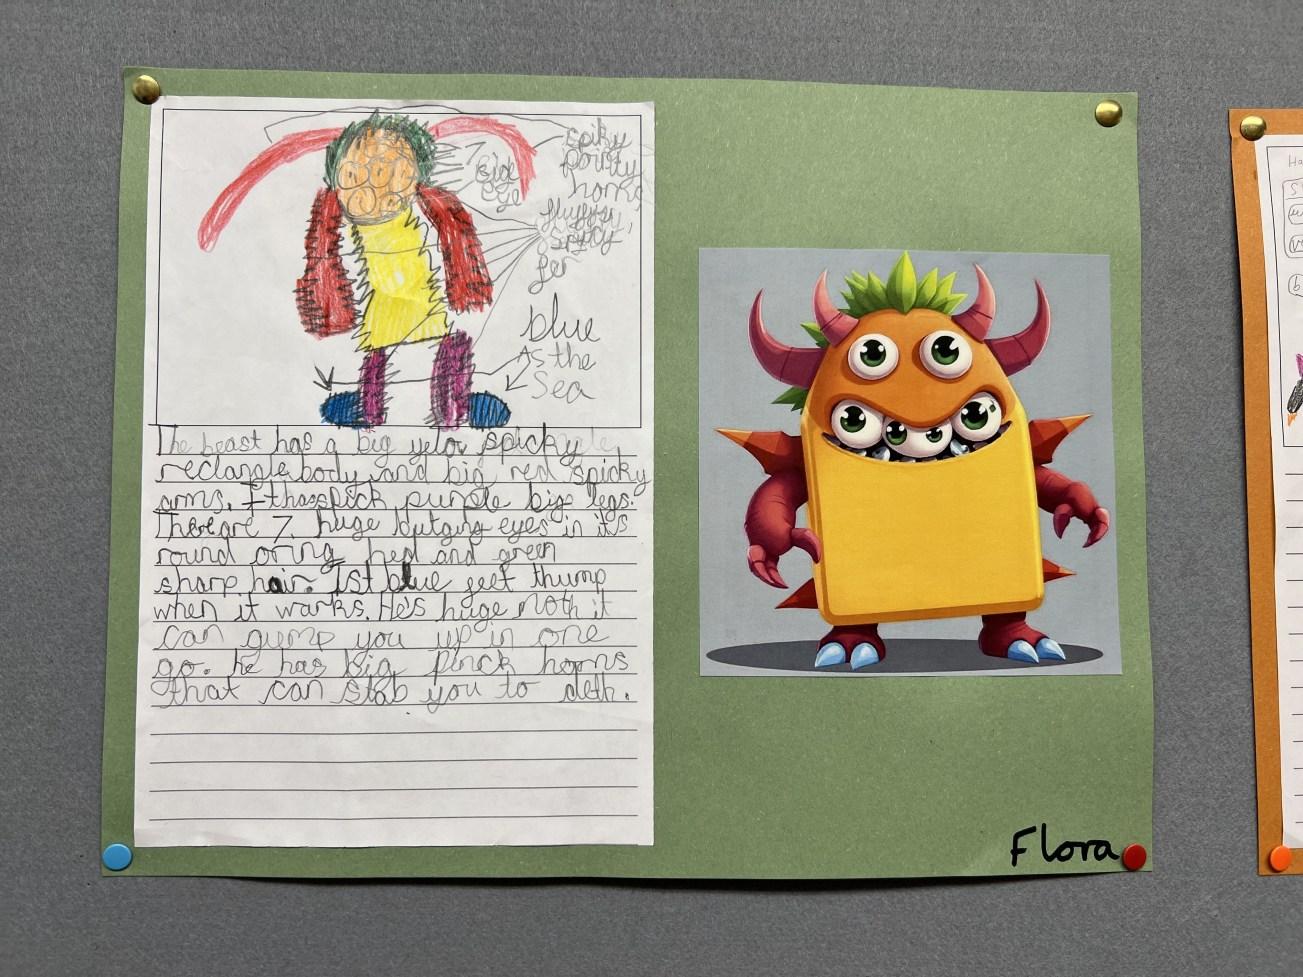 spiky
pointy
horns
Big
eye
fluffy,
spicy
fer
blue
As the
Sea
The beast has a big yelow spicky
reclangle body and big red spicky
arms. It has pick purple big legs.
There are 7 huge bulging eyes in it's
round oring hed and green
sharp hair. Ist blue feet thump
when it warks. He's huge noth it
can gump you up in one
go. he has big pinck horns
that can stab you to deth.
Flora